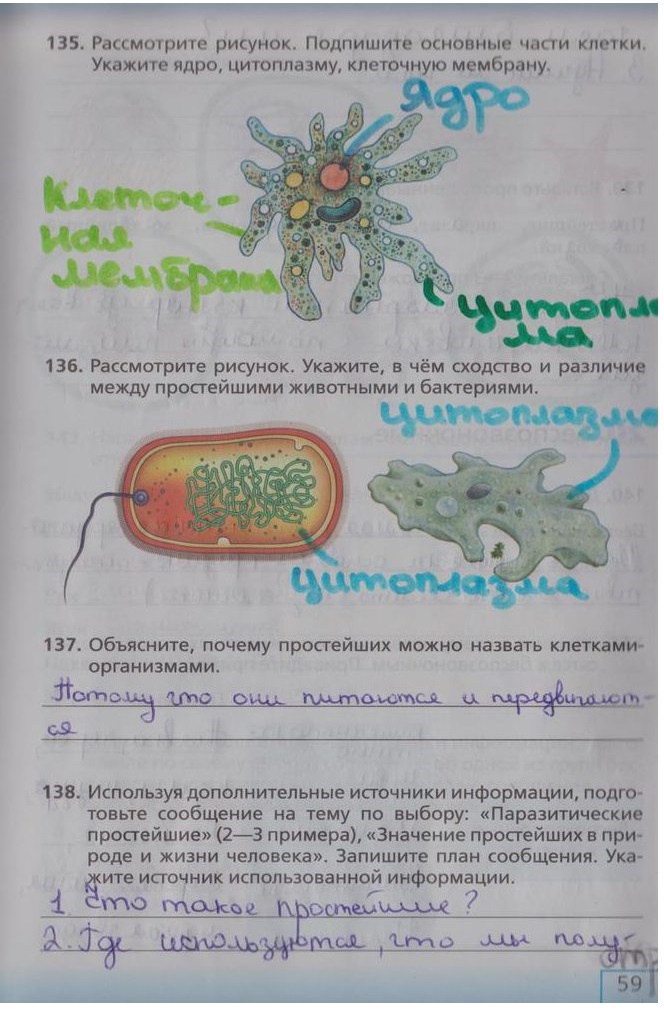 135. Рассмотрите рисунок. Подпишите основные части клетки.
Укажите ядро, цитоплазму, клеточную мембрану.
Ядро
Клеточ-
ная
мембрана
цитопла
ма
136. Рассмотрите рисунок. Укажите, в чём сходство и различие
между простейшими животными и бактериями.
цитоплазма
цитоплазма
137. Объясните, почему простейших можно назвать клетками-
организмами.
Потому что они питаются и передвигают-
ся
138. Используя дополнительные источники информации, подго-
товьте сообщение на тему по выбору: «Паразитические
простейшие» (2—3 примера), «Значение простейших в при-
роде и жизни человека». Запишите план сообщения. Ука-
жите источник использованной информации.
1. Что такое простейшие?
2. Где используются, что мы полу-
59